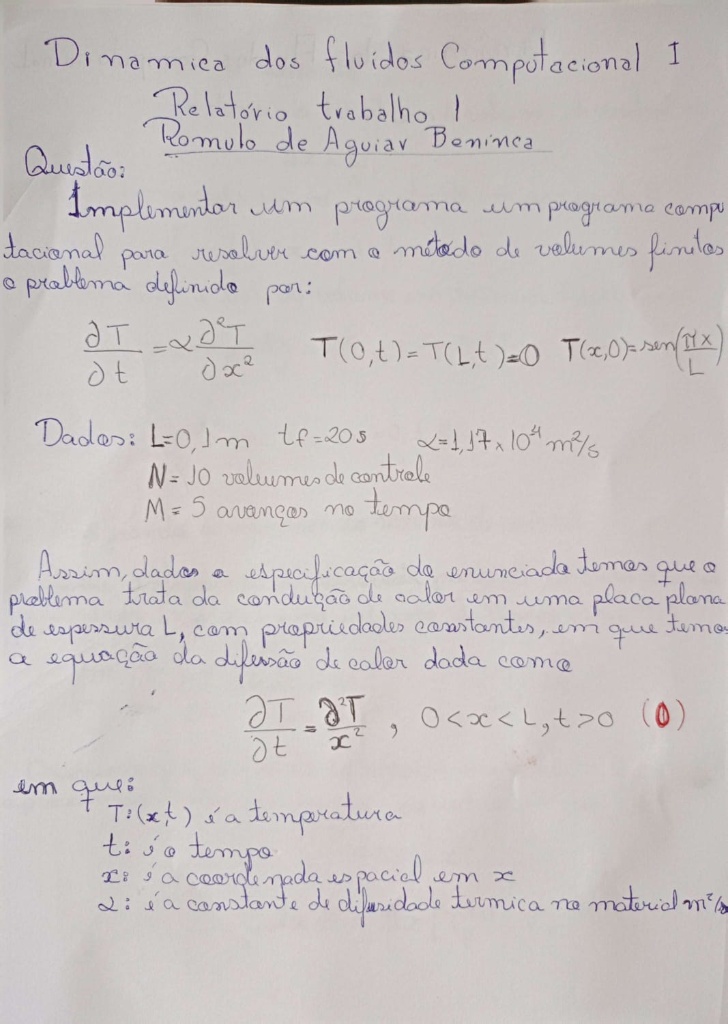 Dinamica dos fluidos Computacional I
Relatório trabalho 1
Romulo de Aguiar Beninca
Questão:
Implementar um programa um programa compu
tacional para resolver com o método de volumes finitos
o problema definido por:
∂T/∂t = α ∂²T/∂x² T(0,t)=T(L,t)=0 T(x,0)=sen(πx/L)
Dados: L=0,1m tf=20s α=1,17×10⁻⁴ m²/s
N= 10 volumes de controle
M= 5 avanços no tempo
Assim, dados a especificação do enunciado temos que o
problema trata da condução de calor em uma placa plana
de espessura L, com propriedades constantes, em que temos
a equação da difusão de calor dada como
∂T/∂t = ∂²T/x² , 0<x<L, t>0 (0)
em que:
T:(x,t) é a temperatura
t: é o tempo
x: é a coordenada espacial em x
α: é a constante de difusidade termica no material m²/s